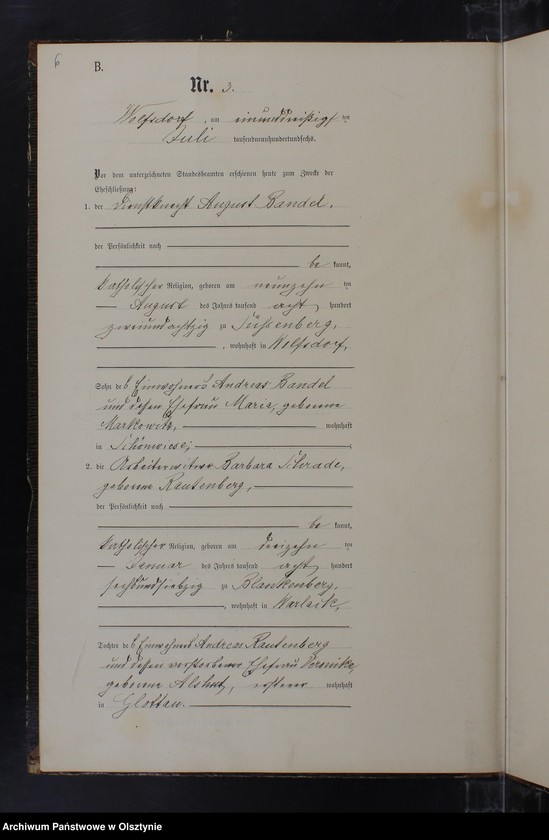 6
B.
Nr. 3.
Wolfsdorf, am einunddreißigsten
Juli tausendneunhundertundsechs.
Vor dem unterzeichneten Standesbeamten erschienen heute zum Zwecke der
Eheschließung:
1. der Dienstknecht August Bandel,
der Persönlichkeit nach
be kannt,
katholischer Religion, geboren am neunzehn ten
August des Jahres tausend acht hundert
zweiundachtzig zu Süßenberg,
, wohnhaft in Wolfsdorf,
Sohn des Einwohners Andreas Bandel
und dessen Ehefrau Maria, geborene
Markowitz, wohnhaft
in Schönwiese;
2. die Arbeiterwitwe Barbara Schrade,
geborene Rautenberg,
der Persönlichkeit nach
be kannt,
katholischer Religion, geboren am dreizehn ten
Januar des Jahres tausend acht hundert
sechsundsiebzig zu Blankenberg,
, wohnhaft in
Tochter des Einwohners Andreas Rautenberg
und dessen verstorbener Ehefrau Veronika,
geborene , ersterer wohnhaft
in Glottau.
Archiwum Państwowe w Olsztynie